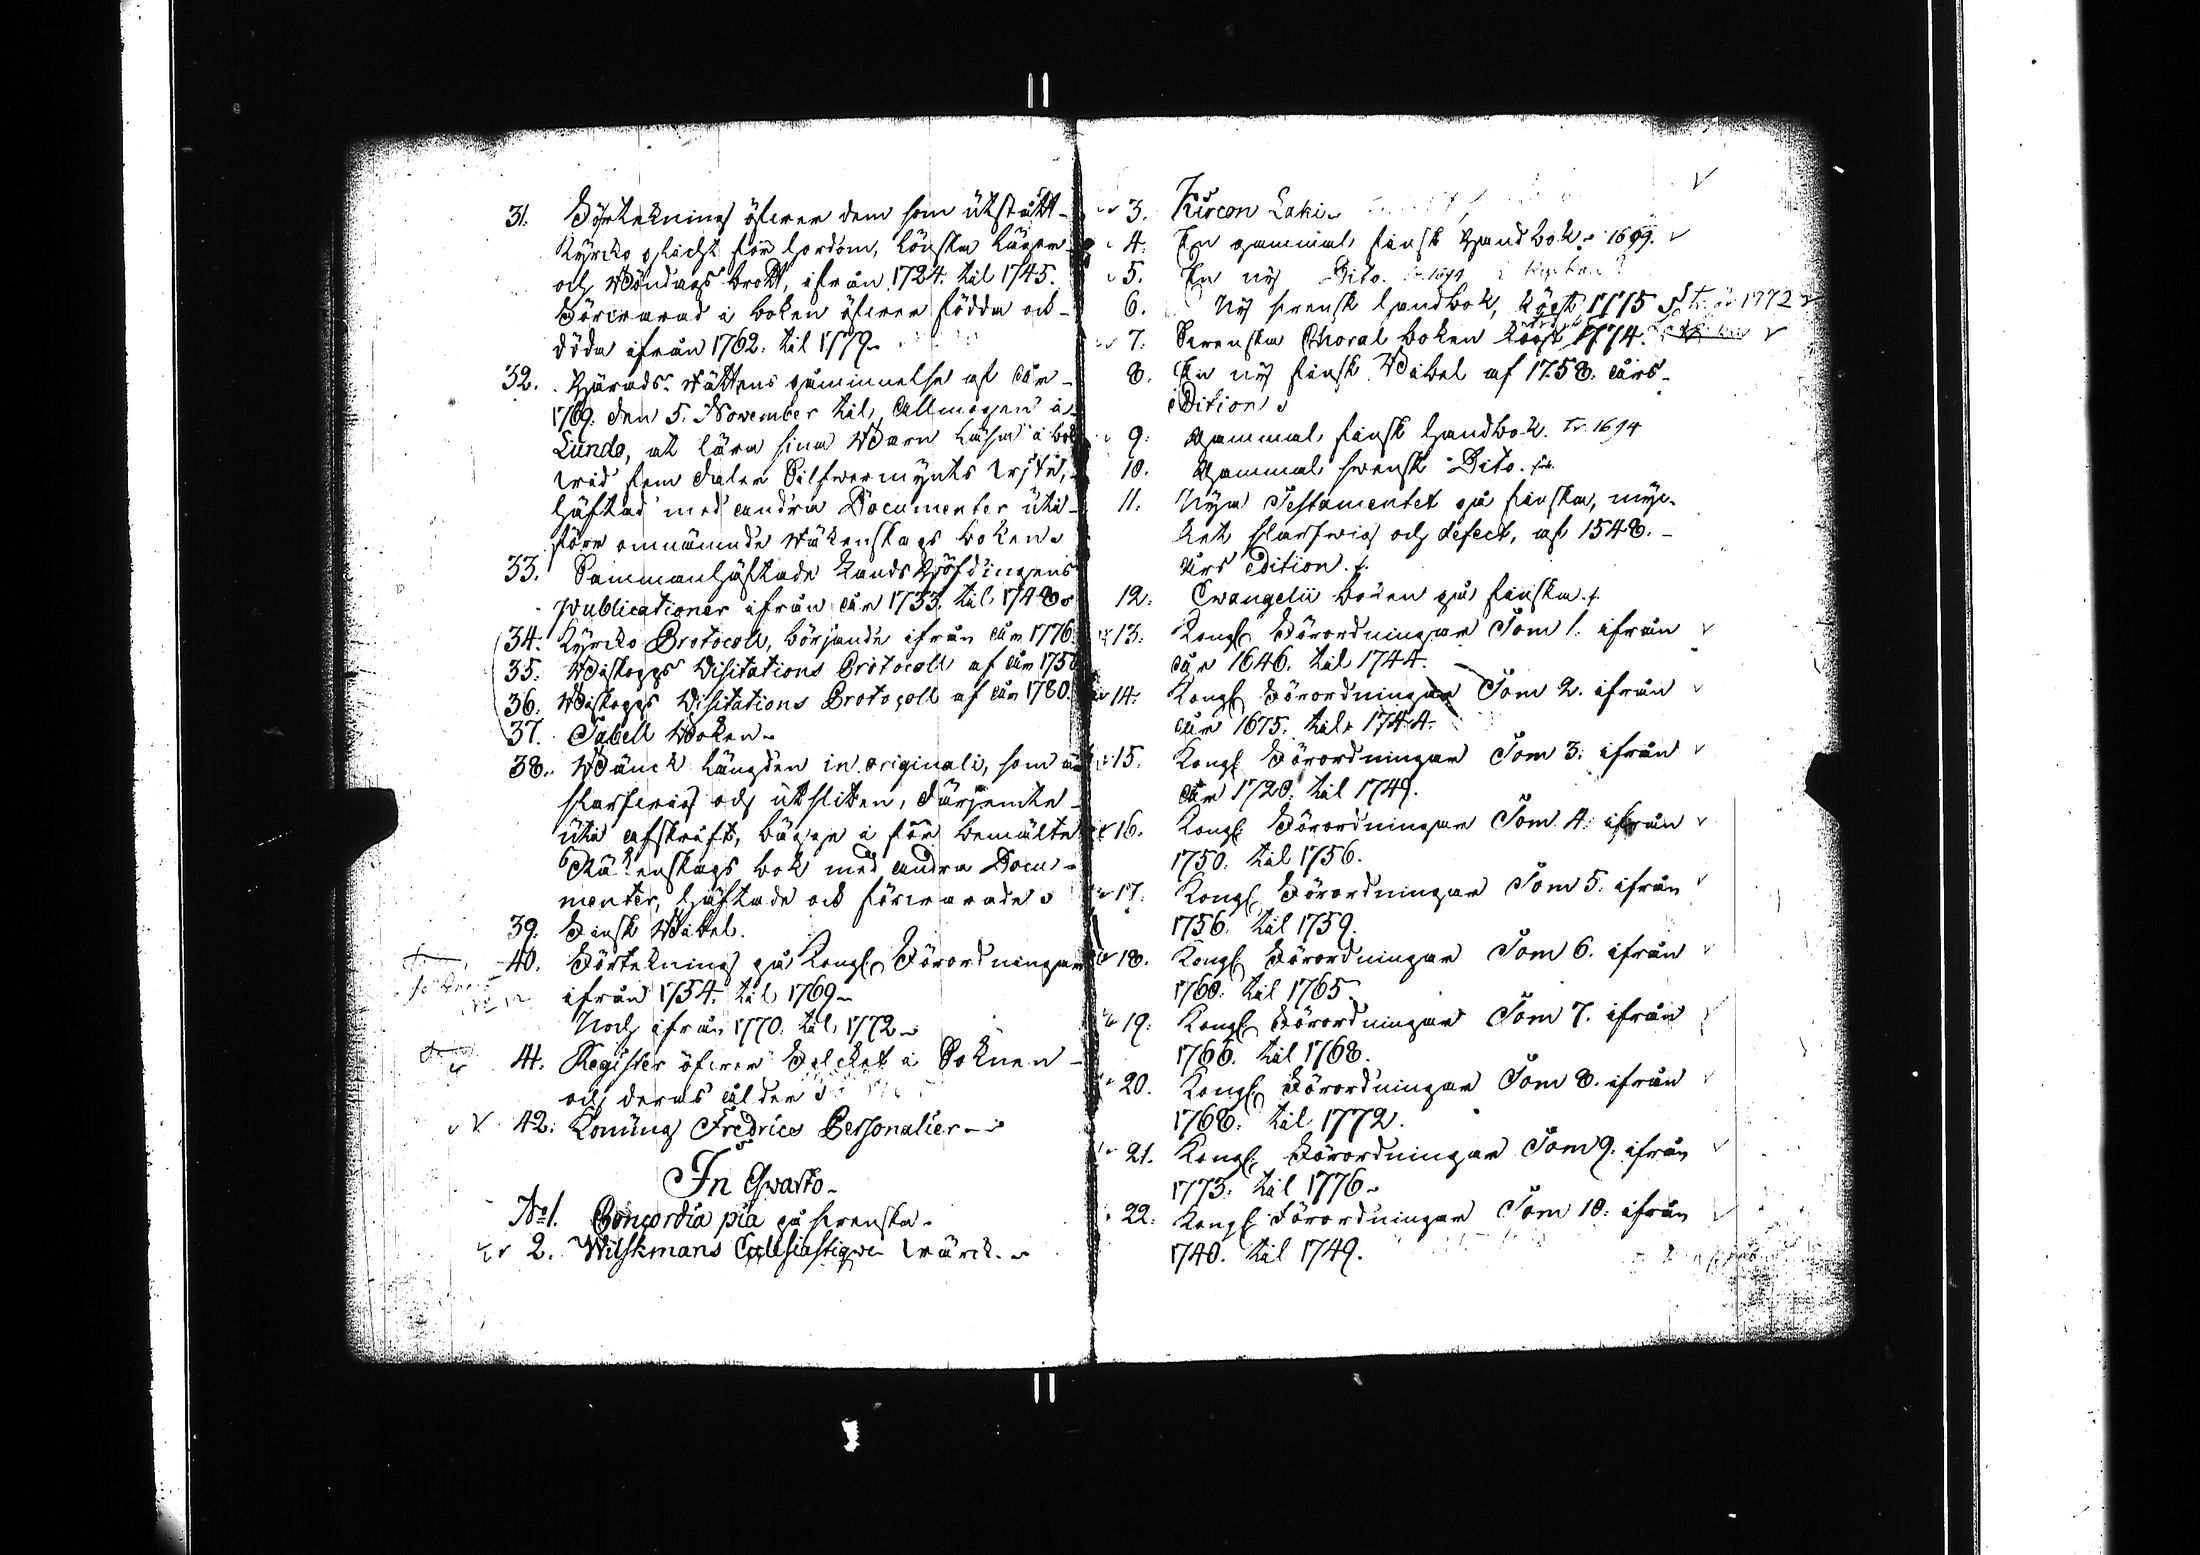 31. Förtekning öfwer dem som utstådt
Kyrko plickt för hordom, lönska läger
och Söndags brott, ifrån 1724. til 1745.
Förwarad i boken öfwer födda och
döda ifrån 1762. til 1779.
32. Härads Rättens påminnelse af år
1769. den 5. November til Allmogen i
Lundo, at lära sina Barn läsa i bok
wid fem daler Silfwermynts wite,
häftad med andra Documenter uti
förr omnämnde Räkenskaps boken.
33. Sammanhäftade Landshöfdingens
Publicationer ifrån år 1733. til 1748.
34. Kyrko Protocoll, börjande ifrån år 1776.
35. Biskopps Visitations Protocoll af år 175
36. Biskopps Visitations Protocoll af år 1780.
37. Tabell Boken.
38. Bänck Längden in originali, som är
skarfwig och utsliten, därjemte
uti afskrift, bägge i förr bemälte
Räkenskaps bok med andra Docu-
menter, häftade och förwarade.
39. Finsk Bibel.
40. Förtekning på Kongl. Förordningar
ifrån 1754. til 1769.
Noch ifrån 1770. til 1772.
41. Register öfwer Folcket i Soknen
och deras ålder
42. Konung Fredrics Personalier.
In Qwarto.
No 1. Concordia pia på swenska.
2. Wilskmans Ecclesiastique wärck.
3. Kircon Laki.
4. En gammal finsk Handbok. 1699.
5. En ny Dito.
6. Ny swensk handbok, köpt 1775 Tr. år 1772
7. Swenska Choral boken köpt 1774.
8. En ny finsk Bibel af 1758. års
edition.
9. Gammal finsk handbok. Tr. 1694
10. Gammal swensk Dito.
11. Nya Testamentet på finska, myc-
ket skarfwig och defect, af 1548.
års edition.
12. Evangelii boken på finska.
13. Kongl. Förordningar Tom 1. ifrån
år 1646. til 1744.
14. Kongl. Förordningar Tom 2. ifrån
år 1675. til 1744.
15. Kongl. Förordningar Tom 3. ifrån
år 1720. til 1749.
16. Kongl. Förordningar Tom 4. ifrån
1750. til 1756.
17. Kongl. Förordningar Tom 5. ifrån
1756. til 1759.
18. Kongl. Förordningar Tom 6. ifrån
1760. til 1765.
19. Kongl. Förordningar Tom 7. ifrån
1766. til 1768.
20. Kongl. Förordningar Tom 8. ifrån
1768. til 1772.
21. Kongl. Förordningar Tom 9. ifrån
1773. til 1776.
22. Kongl. Förordningar Tom 10. ifrån
1740. til 1749.